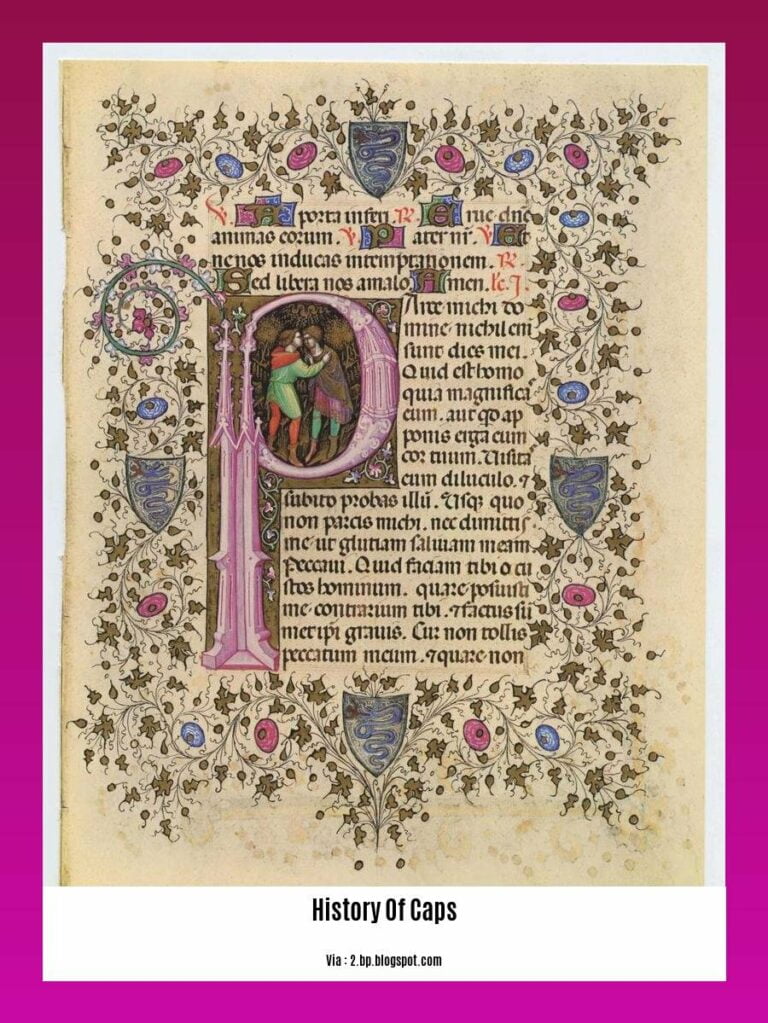 V. A porta inferi. R. Erue dne
animas eorum. V. Pater nr. V. Et
ne nos inducas intemptationem. R.
Sed libera nos amalo. Amen. lc. J.
PArce michi do
mine nichil eni
sunt dies mei.
Quid est homo
quia magnifica
eum. aut qd ap
ponis erga eum
cor tuum. Visita
eum diluculo. ⁊
subito probas illū. Usq quo
non parcis michi. nec dimittis
me ut glutiam saliuam meam
Peccaui. Quid faciam tibi o cu
stos hominum. quare posuisti
me contrarium tibi. ⁊ factus sū
metipi grauis. Cur non tollis
peccatum meum. ⁊ quare non
History Of Caps
Via : 2.bp.blogspot.com